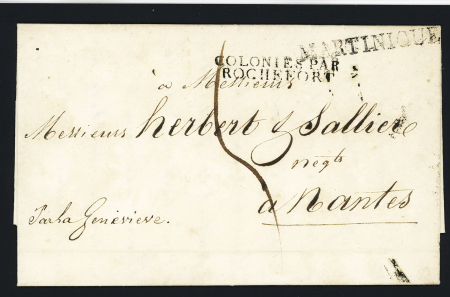 MARTINIQUE
COLONIES PAR
ROCHEFORT
à Messieurs
Messieurs Herbert & Sallière
negts
à Nantes
Par la Geneviève.